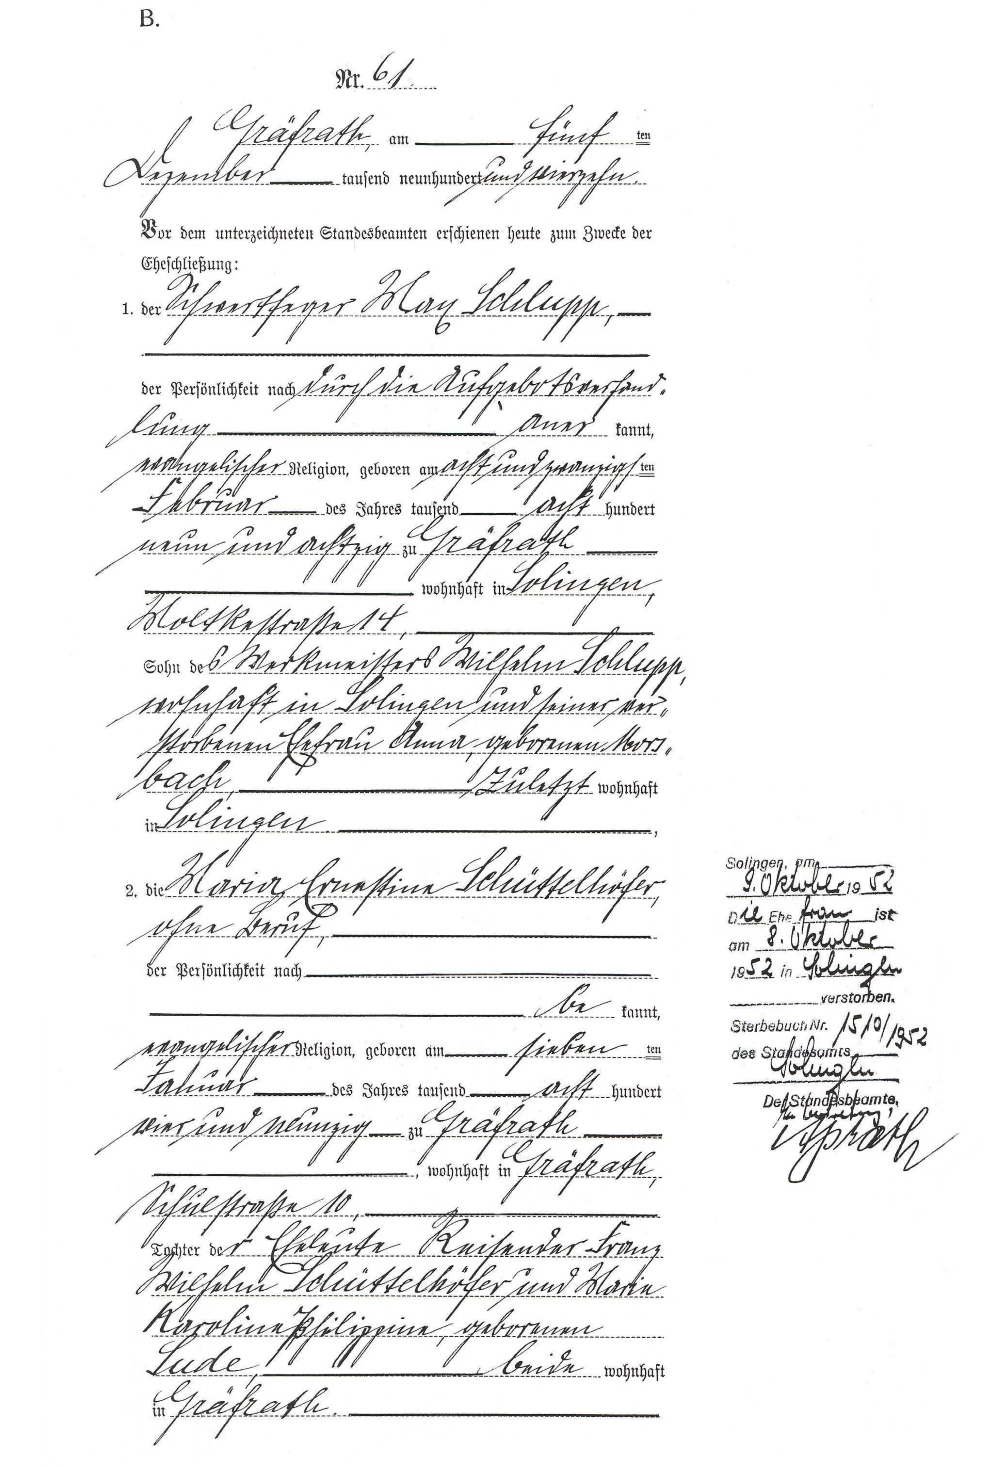 B.
Nr. 61.
Gräfrath, am fünf ten
Dezember tausend neunhundert und vierzehn.
Vor dem unterzeichneten Standesbeamten erschienen heute zum Zwecke der
Eheschließung:
1. der Schwertfeger Max Schlupp,
der Persönlichkeit nach durch die Aufgebotsverhand-
lung aner kannt,
evangelischer Religion, geboren am acht und zwanzigs ten
Februar des Jahres tausend acht hundert
neun und achtzig zu Gräfrath
wohnhaft in Solingen,
Moltkestraße 14,
Sohn des Werkmeisters Wilhelm Schlupp,
wohnhaft in Solingen und seiner ver-
storbenen Ehefrau Anna, geborenen Mors-
bach, zuletzt wohnhaft
in Solingen,
2. die Maria Ernestine Schüttelhöfer,
ohne Beruf,
der Persönlichkeit nach
be kannt,
evangelischer Religion, geboren am sieben ten
Januar des Jahres tausend acht hundert
vier und neunzig zu Gräfrath
, wohnhaft in Gräfrath,
Schulstraße 10,
Tochter der Eheleute Reisender Franz
Wilhelm Schüttelhöfer und Marie
Karoline Philippine, geborenen
Lude, beide wohnhaft
in Gräfrath.
Solingen, am
9. Oktober 1952
Die Ehefrau ist
am 8. Oktober
1952 in Solingen
verstorben.
Sterbebuch Nr. 1510/1952
des Standesamts
Solingen
Der Standesbeamte,
In Vertretung: